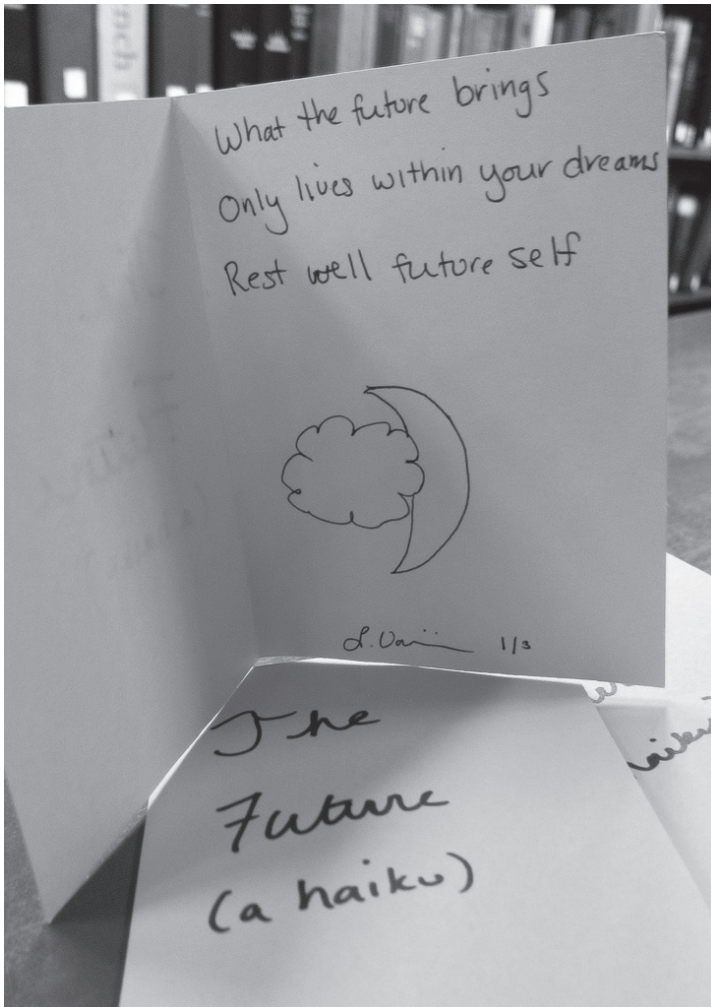 What the future brings
Only lives within your dreams
Rest well future self
1/3
The
Future
(a haiku)